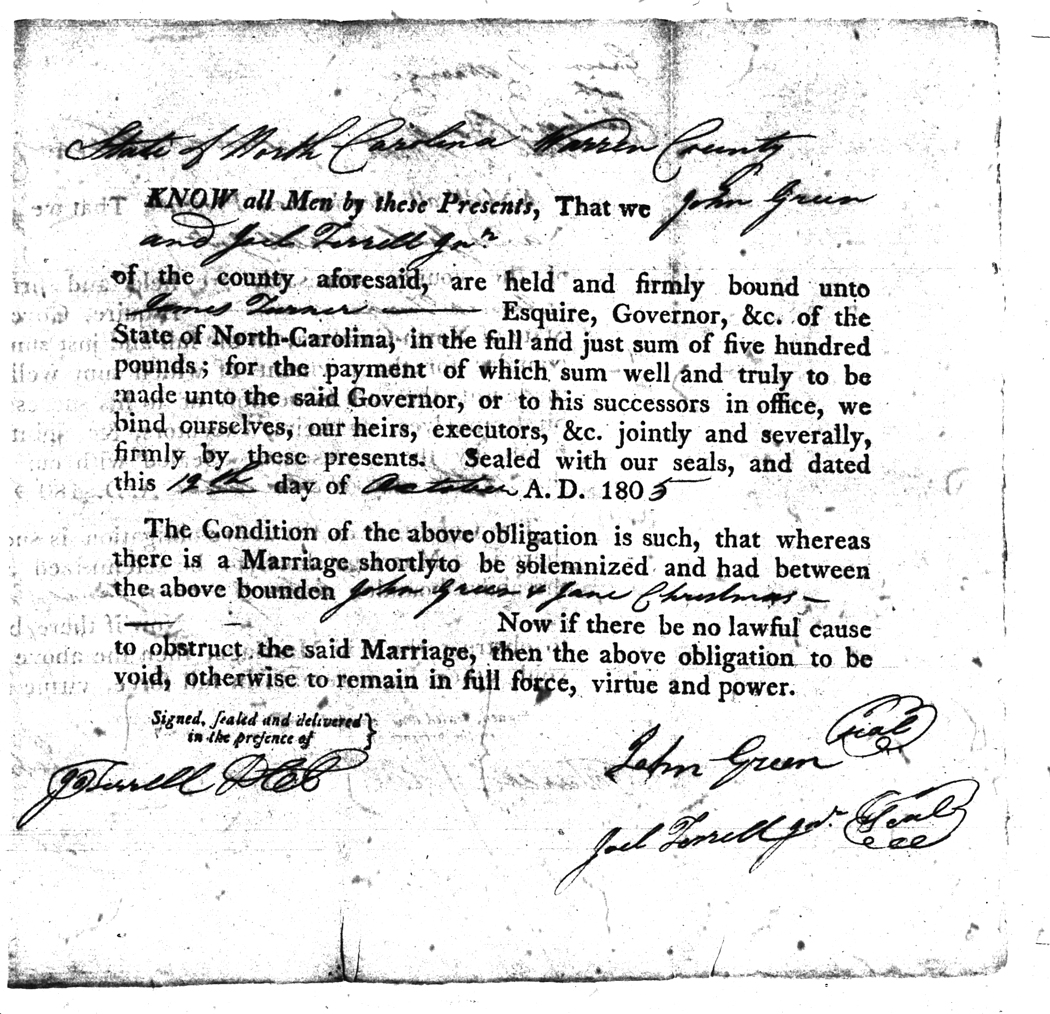 State of North Carolina Warren County
KNOW all Men by these Presents, That we John Green
and Joel Terrell Jnr
of the county aforesaid, are held and firmly bound unto
James Turner Esquire, Governor, &c. of the
State of North-Carolina, in the full and just sum of five hundred
pounds; for the payment of which sum well and truly to be
made unto the said Governor, or to his successors in office, we
bind ourselves, our heirs, executors, &c. jointly and severally,
firmly by these presents. Sealed with our seals, and dated
this 12th day of October A. D. 1805
The Condition of the above obligation is such, that whereas
there is a Marriage shortly to be solemnized and had between
the above bounden John Green & Jane Christmas
Now if there be no lawful cause
to obstruct the said Marriage, then the above obligation to be
void, otherwise to remain in full force, virtue and power.
Signed, sealed and delivered
in the presence of
Terrell
John Green Seal
Joel Terrell Jnr Seal